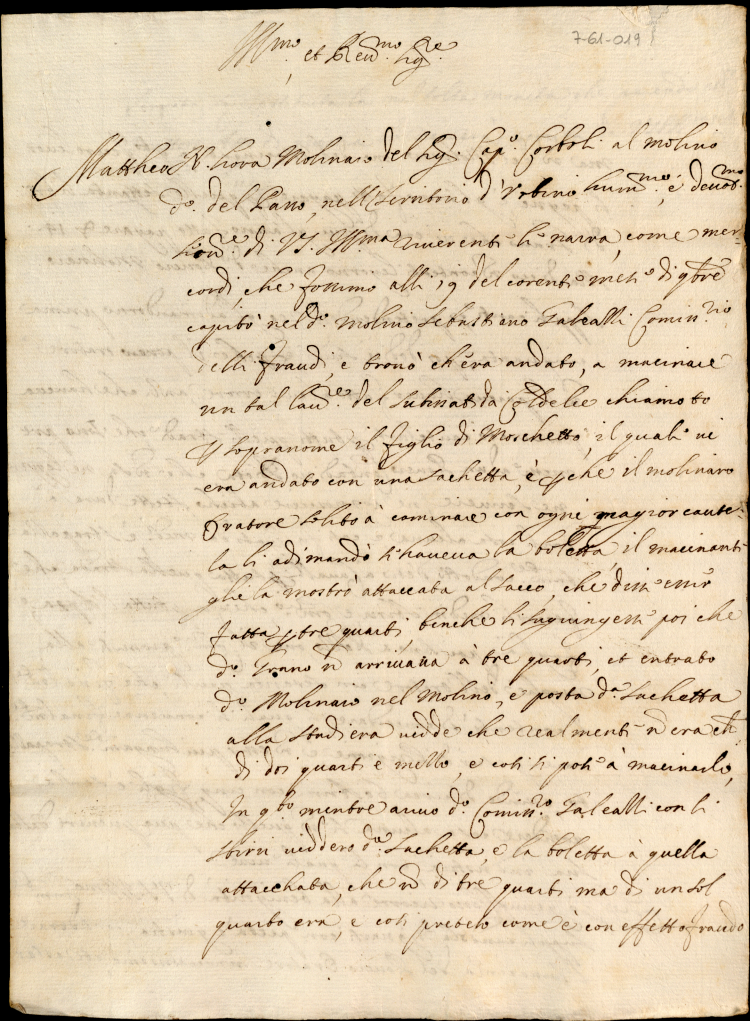 7-61-019
Ill.mo et Rev.mo Sig.re
Mattheo N. hora Molinaio del Sig. Cap.o Corboli al molino
d.o del Passo, nell Territorio d'Urbino hum.mo, e devot.mo
di V.S. Ill.ma riverente li narra, come mer-
cordì, che fossimo alli 19 del corente mese di
capitò nel d.o molino Sebastiano Galealli Comiss.rio
delli fraudi, e trovò ch'era andato, a macinare
un tal lav.re del chiamato
sopranome il figlio di Moschetto, il quale vi
era andato con una sachetta, e che il molinaro
Oratore solito à caminare con ogni magior caute-
la li adimandò s'haveva la boletta, il macinante
ghe la mostrò attaccata al sacco, che disse esser
fatta p tre quarti, benche li sogiungesse poi che
d.o Grano n arrivava à tre quarti, et entrato
d.o Molinaio nel molino, e posta d.a Sachetta
alla stadiera vidde che realmente n era ch
di doi quarti e mezzo, e così si pose à macinarlo,
In q.to mentre arivò d.o Comiss.ro Galealli con li
sbirri viddero d.a Sachetta, e la boletta à quella
attacchata, che n di tre quarti ma di un sol
quarto era, e così preteso come è con effetto fraudo